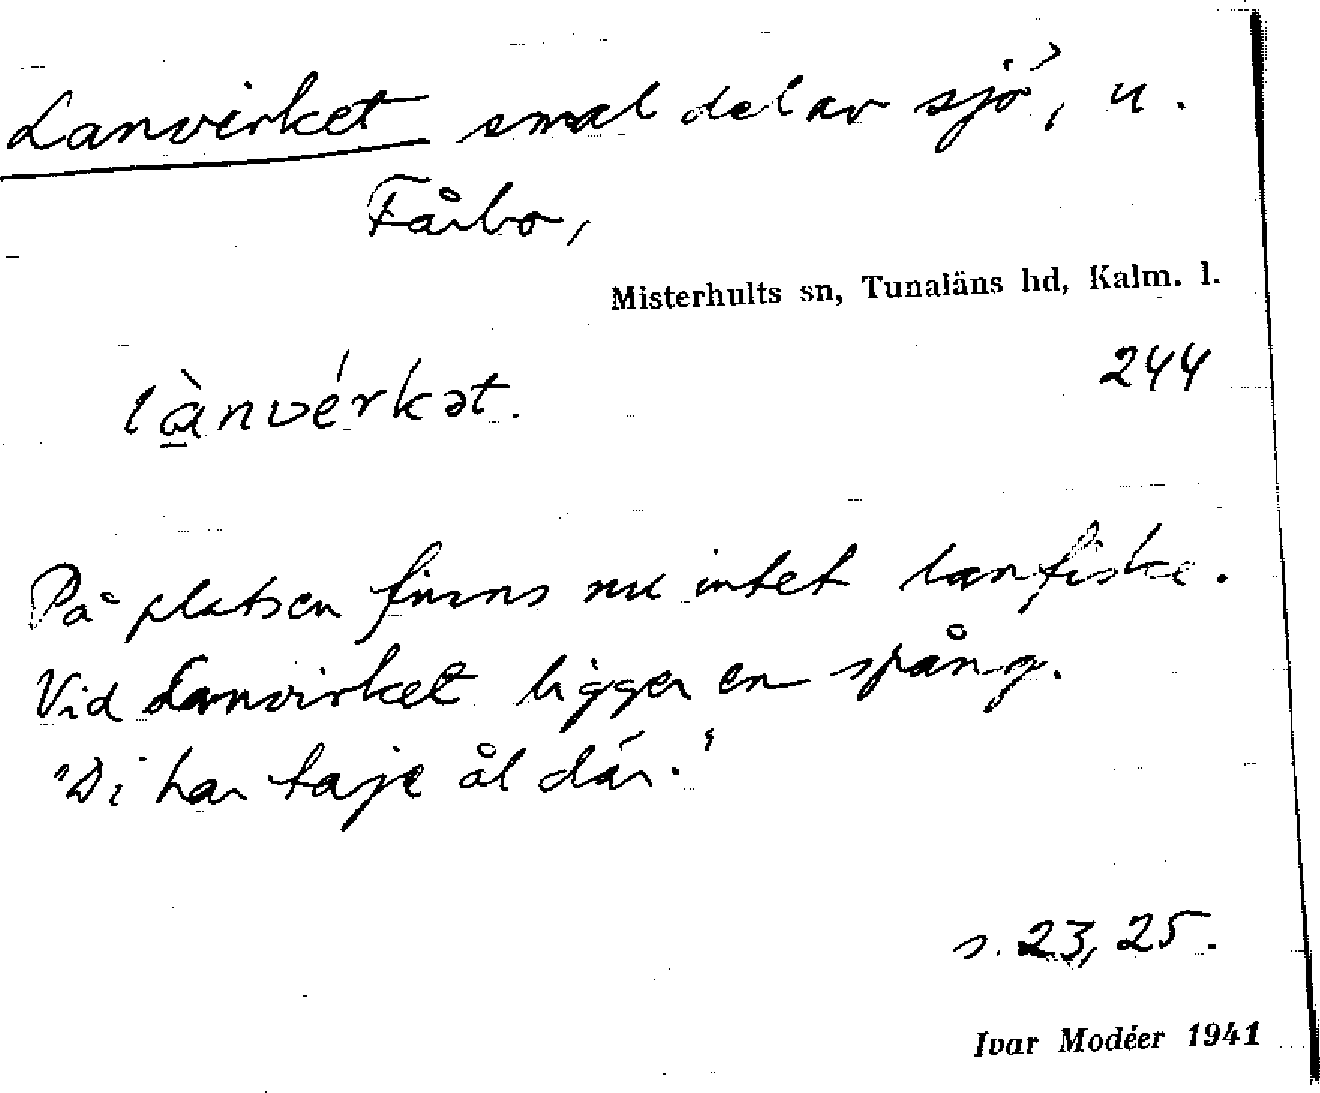 Lanvirket smal del av sjö, u.
Fårbo,
Misterhults sn, Tunaläns hd, Kalm. l.
244
lànvérkət.
På platsen finns nu intet lanfiske.
Vid Lanvirket ligger en spång.
"Di har taje ål där."
s. 23, 25.
Ivar Modéer 1941